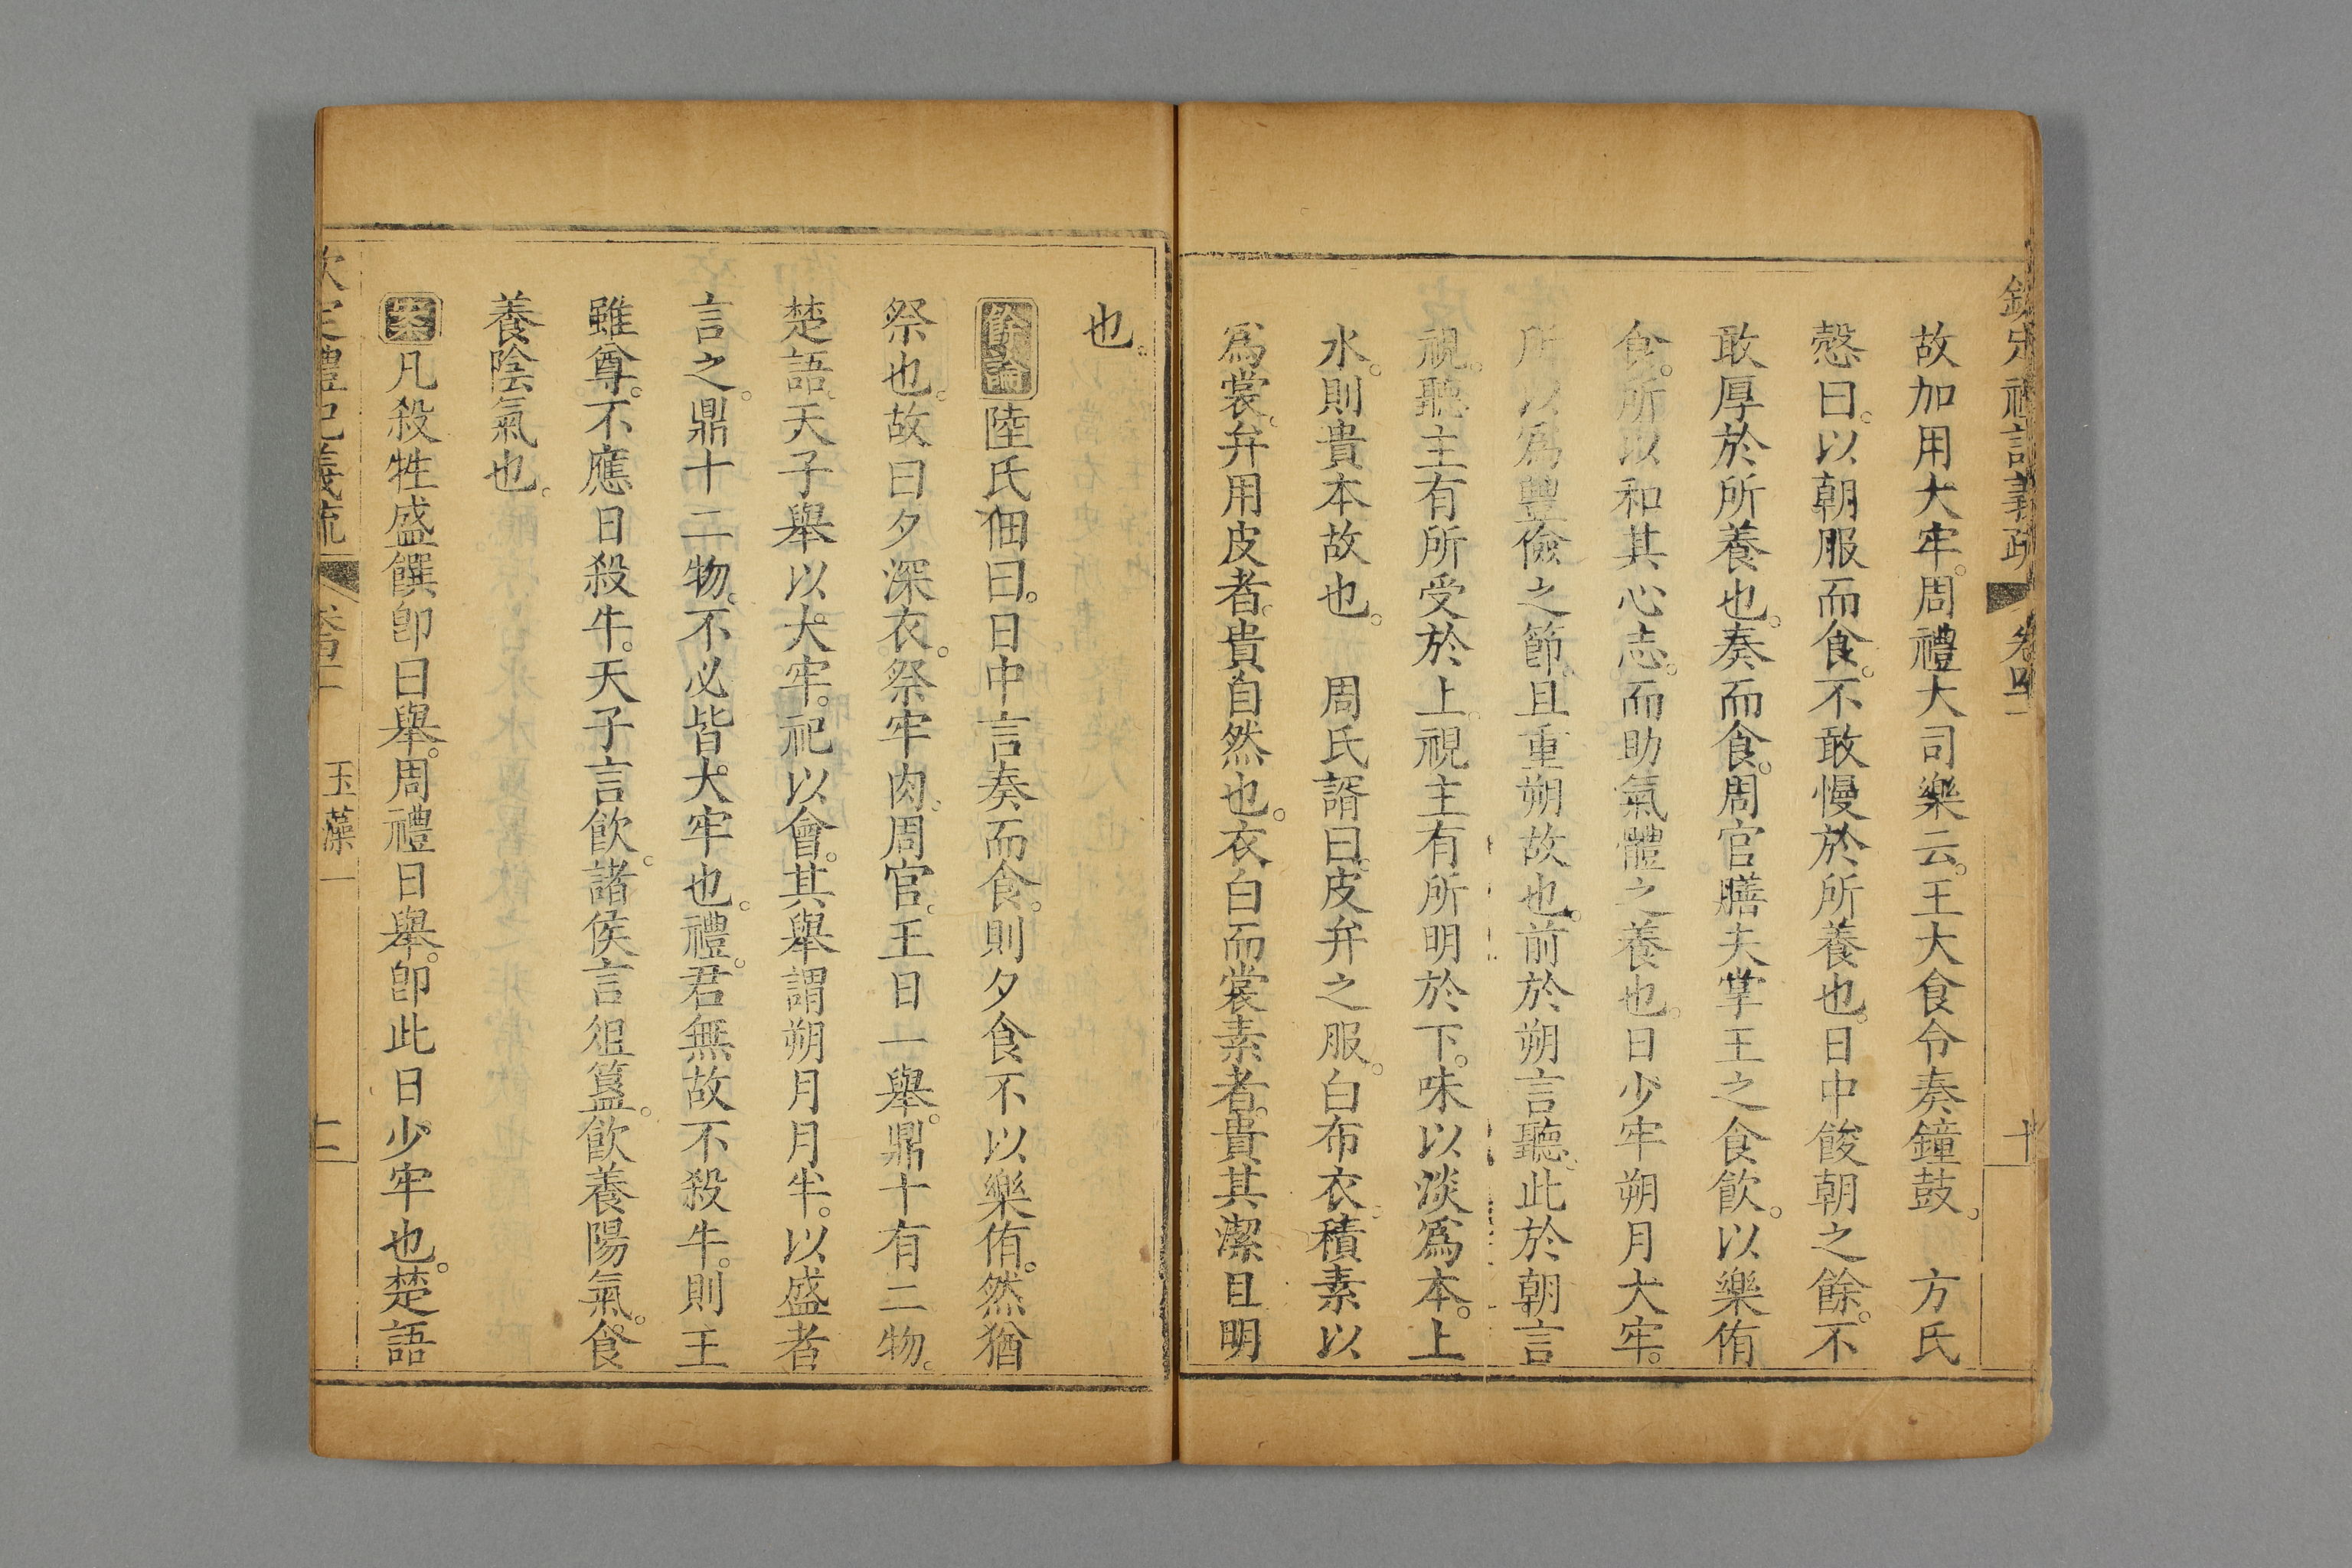 欽定禮記義疏 卷四十 十
故加用大牢。周禮大司樂云。王大食令奏鐘鼓。 方氏
慤曰。以朝服而食。不敢慢於所養也。日中餕朝之餘。不
敢厚於所養也。奏而食。周官膳夫掌王之食飲。以樂侑
食。所以和其心志。而助氣體之養也。日少牢朔月大牢。
所以爲豐儉之節。且重朔故也。前於朔言聽。此於朝言
視。聽主有所受於上。視主有所明於下。味以淡爲本。上
水。則貴本故也。 周氏諝曰。皮弁之服。白布衣。積素以
爲裳。弁用皮者。貴自然也。衣白而裳素者。貴其潔且明
也。
餘論 陸氏佃曰。日中言奏而食。則夕食不以樂侑。然猶
祭也。故曰夕深衣。祭牢肉。周官。王日一舉。鼎十有二物。
楚語。天子舉以大牢。祀以會。其舉謂朔月月半。以盛者
言之。鼎十二物。不必皆大牢也。禮。君無故不殺牛。則王
雖尊。不應日殺牛。天子言飲。諸侯言俎簋。飲養陽氣。食
養陰氣也。
案 凡殺牲盛饌卽曰舉。周禮日舉。卽此日少牢也。楚語
欽定禮記義疏 卷四十 玉藻一 十二